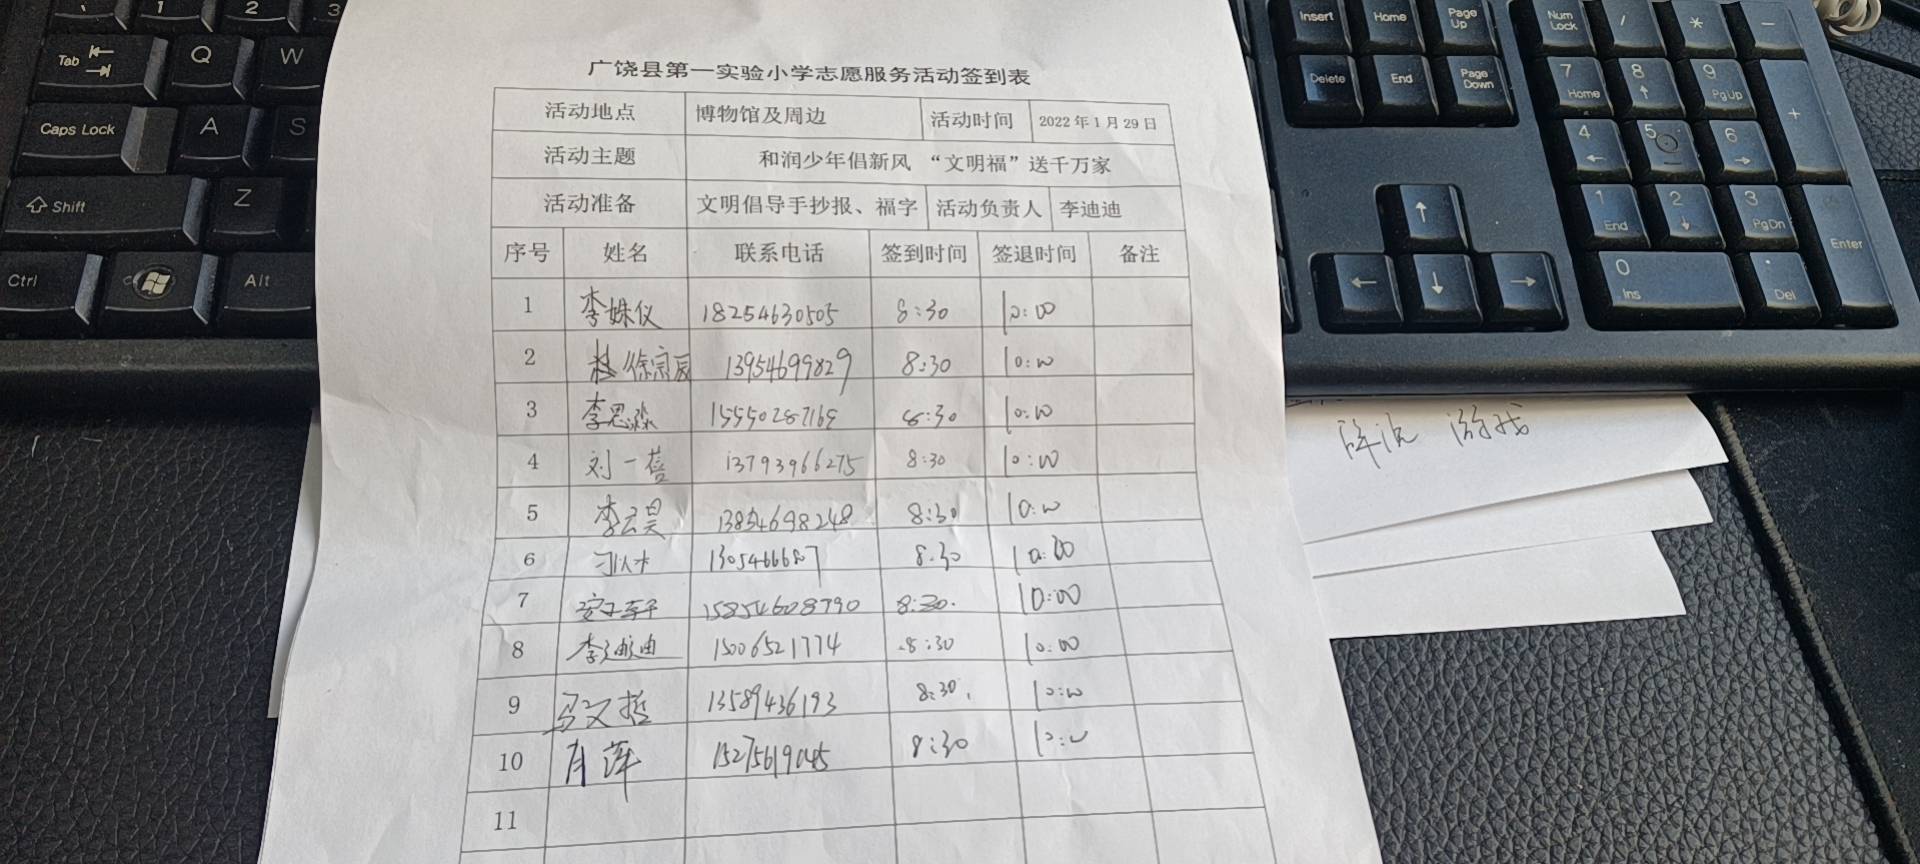 广饶县第一实验小学志愿服务活动签到表
活动地点 博物馆及周边 活动时间 2022年1月29日
活动主题 和润少年倡新风 “文明福”送千万家
活动准备 文明倡导手抄报、福字 活动负责人 李迪迪
序号 姓名 联系电话 签到时间 签退时间 备注
1 李姝仪 18254630505 8:30 10:00
2 徐宗辰 13954699829 8:30 10:00
3 李思淼 8:30 10:00
4 刘一蓓 13793966275 8:30 10:00
5 李云昊 13854698248 8:30 10:00
6 8:30 10:00
7 15854608790 8:30 10:00
8 李迪迪 15006521774 8:30 10:00
9 马文哲 13589436193 8:30 10:00
10 肖萍 8:30 10:00
11
游戏
Tab Q W
Caps Lock A S
Shift Z
Ctrl Alt
1 2 3
Insert Home Page Up Num Lock / * -
Delete End Page Down 7 Home 8 9 PgUp +
4 5 6
1 End 2 3 PgDn Enter
0 Ins . Del